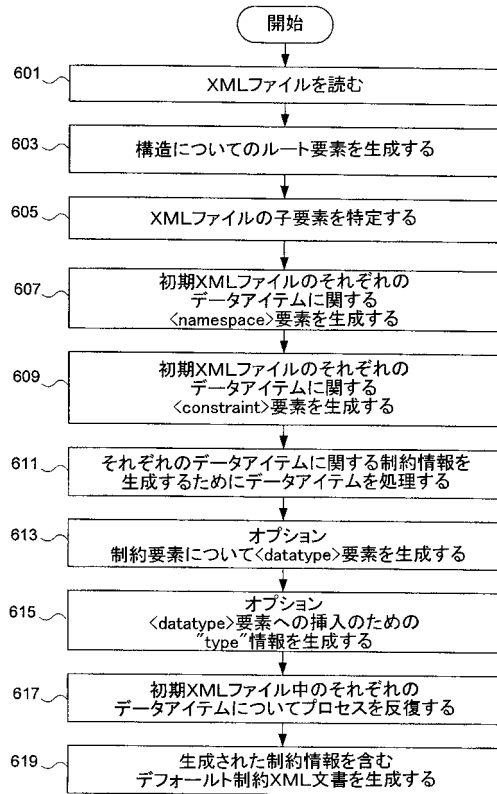 開始
601
XMLファイルを読む
603
構造についてのルート要素を生成する
605
XMLファイルの子要素を特定する
607
初期XMLファイルのそれぞれの
データアイテムに関する
<namespace>要素を生成する
609
初期XMLファイルのそれぞれの
データアイテムに関する
<constraint>要素を生成する
611
それぞれのデータアイテムに関する制約情報を
生成するためにデータアイテムを処理する
613
オプション
制約要素について<datatype>要素を生成する
615
オプション
<datatype>要素への挿入のための
"type"情報を生成する
617
初期XMLファイル中のそれぞれの
データアイテムについてプロセスを反復する
619
生成された制約情報を含む
デフォールト制約XML文書を生成する